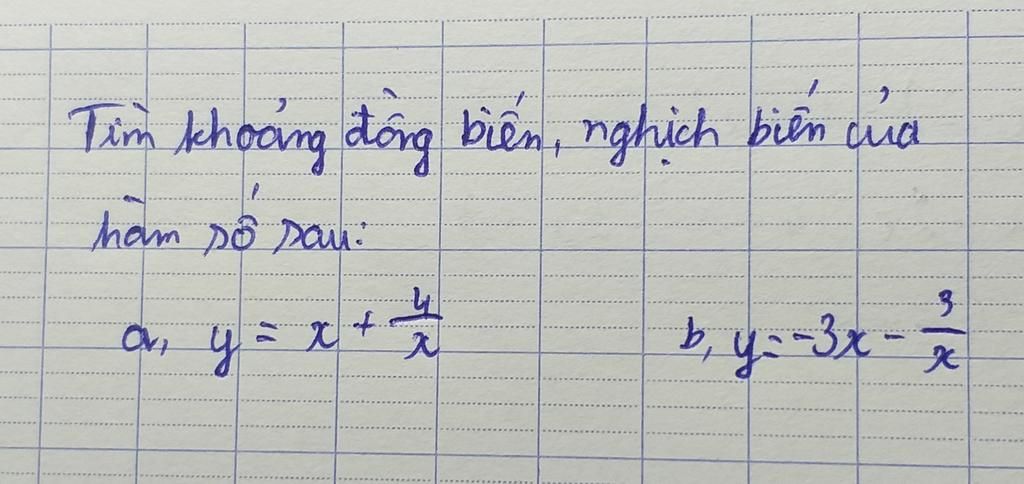 Tìm khoảng đồng biến, nghịch biến của
hàm số sau:
a, y = x + 4/x b, y = -3x - 3/x